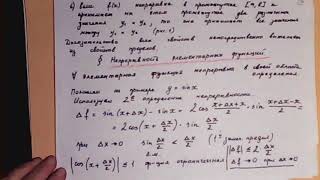 б) если f(x) непрерывна в промежутке [a, b] и
принимает на этом промежутке два разных
значения y₁ ≠ y₂, то она принимает все значения
между y₁ и y₂ (рис. 1).
всех свойств непосредственно вытекает
из свойств пределов.
§ Непрерывность элементарных функций
∀ Элементарная функция непрерывна в своей области
определения
на примере y = sin x
Используем 2ᵉ определение непрерывности
Δf = sin(x+Δx) - sin x = 2cos (x+Δx+x)/2 · sin (x+Δx-x)/2
= 2cos(x + Δx/2) · sin Δx/2
при Δx → 0 sin Δx/2 ~ Δx/2 (1ᵉ замеч. предел)
|cos(x + Δx/2)| ≤ 1 функция ограниченная
|Δf| ≤ 2 Δx/2
Δf → 0 при Δx → 0